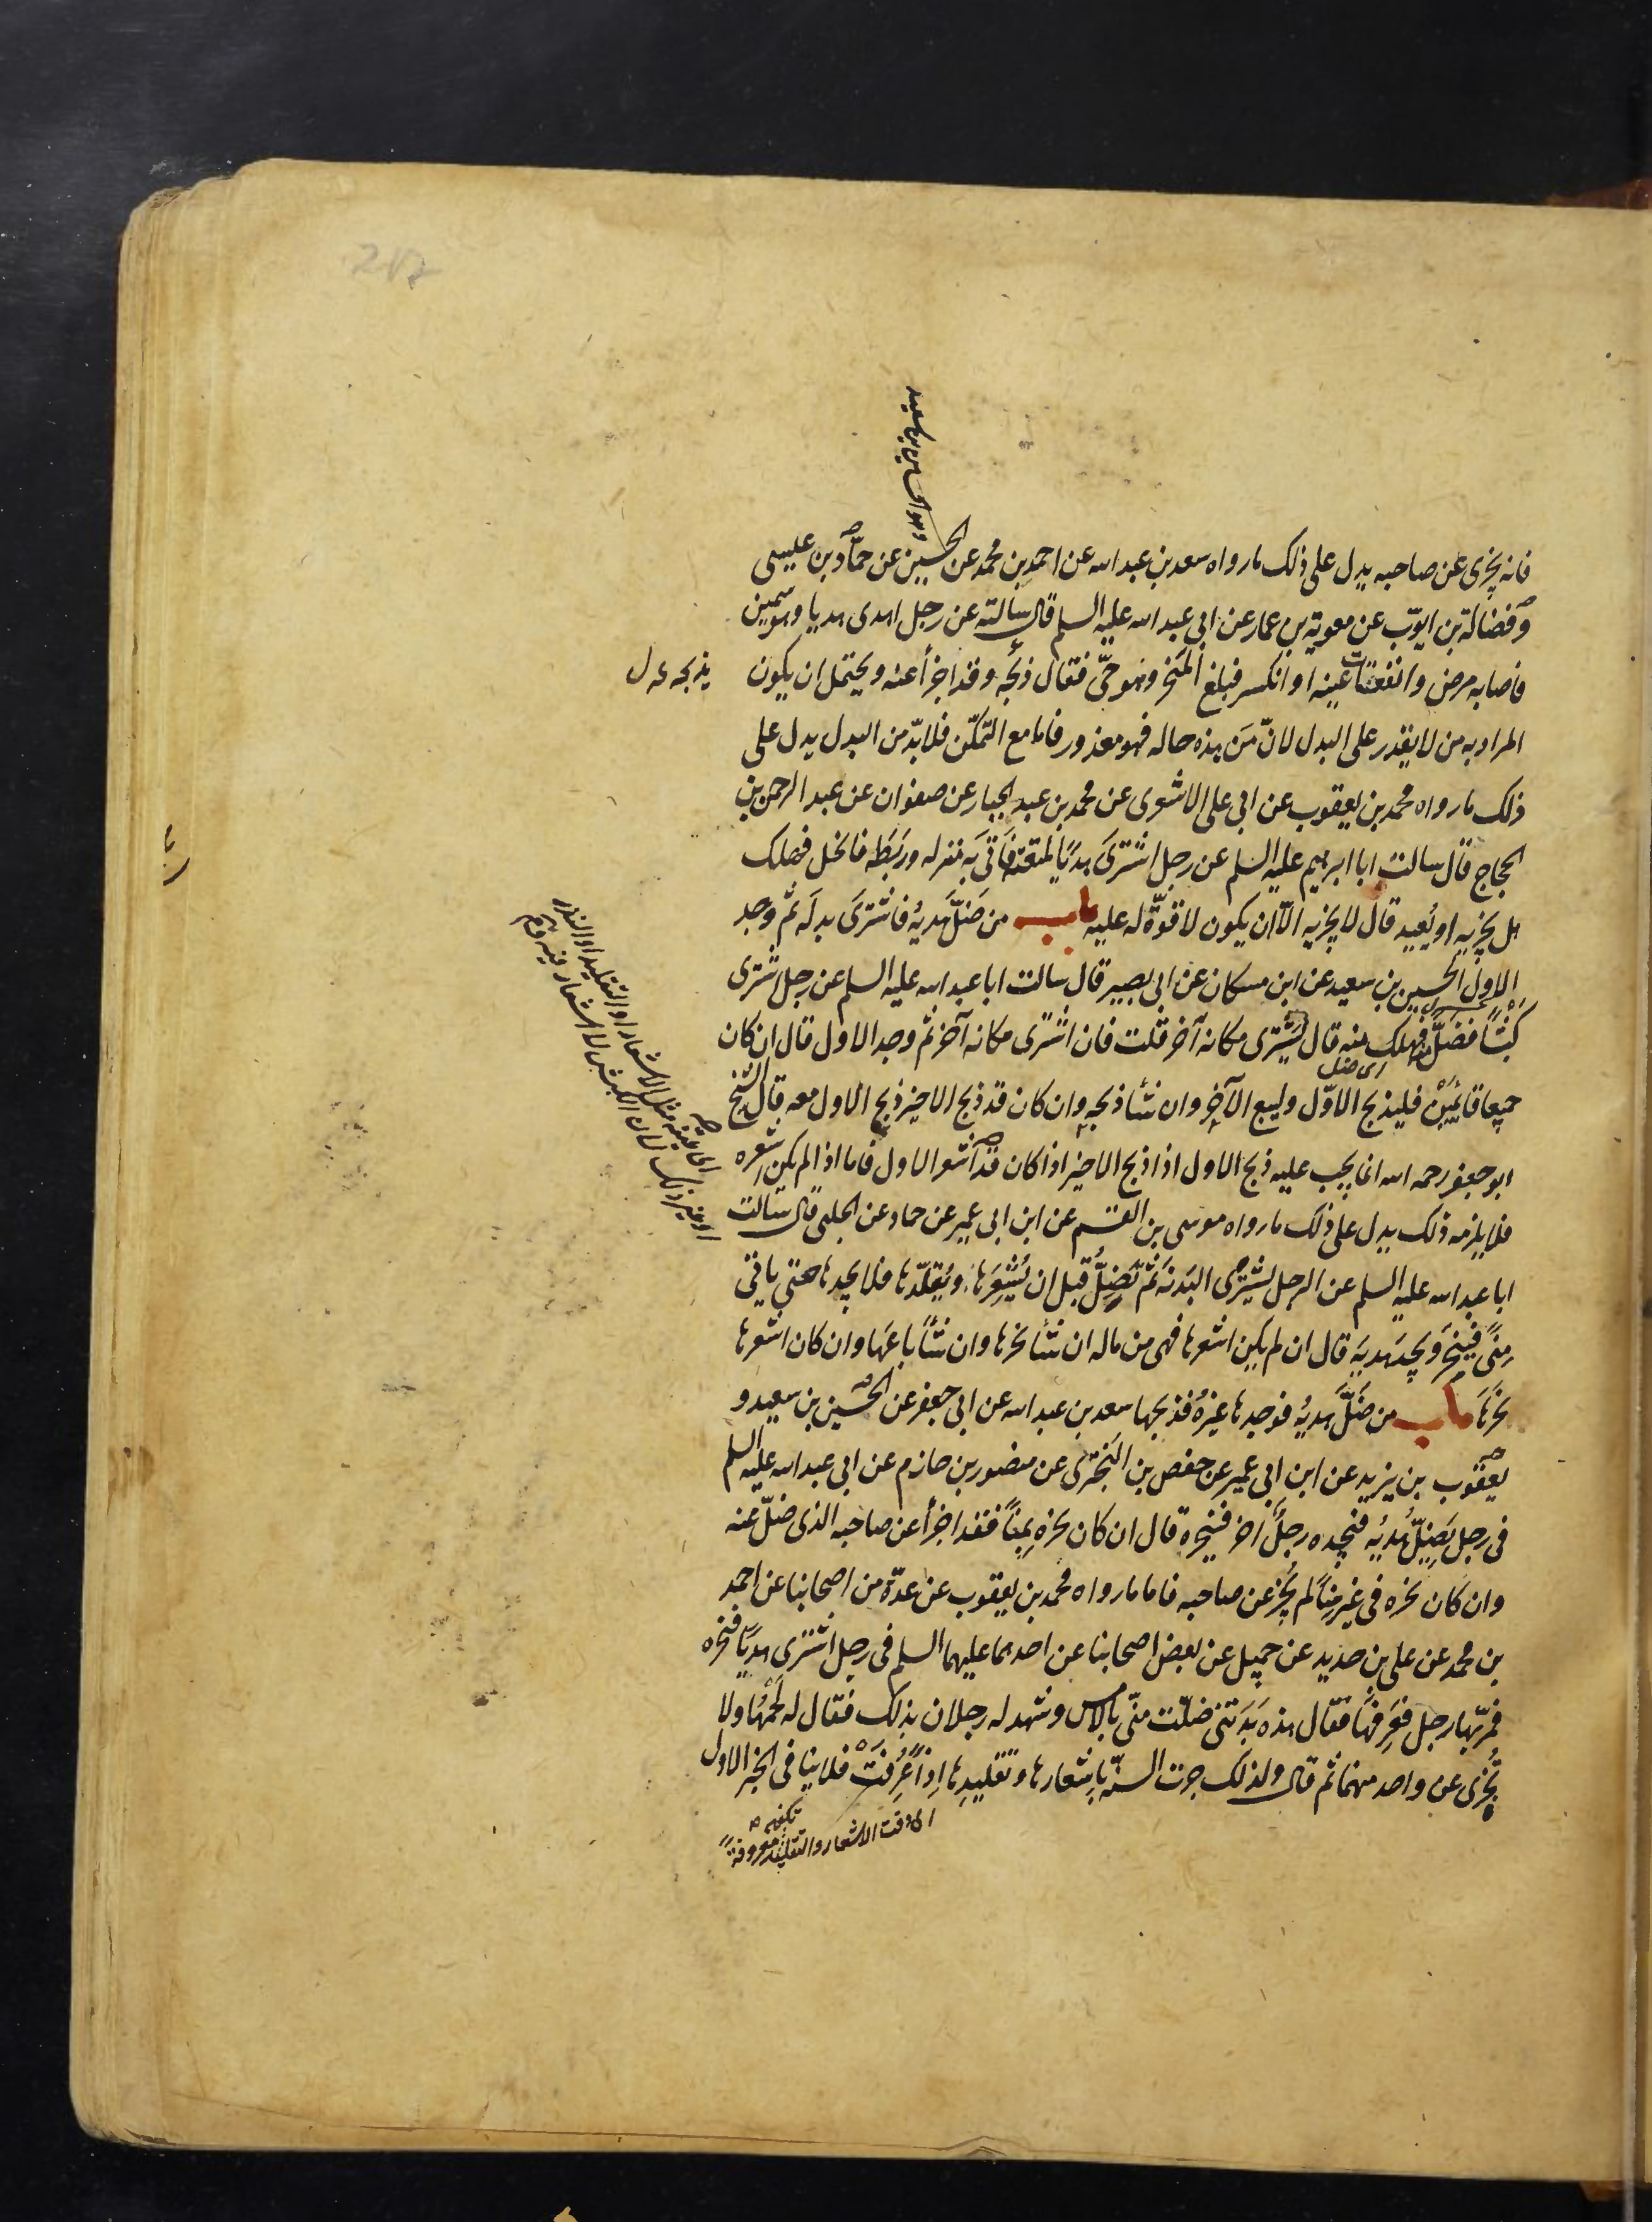 وهو الحسين بن سعيد
فانه يجزى عن صاحبه يدل على ذلك ما رواه سعد بن عبد الله عن احمد بن محمد عن الحسين عن حماد بن عيسى
وفضالة بن ايوّب عن معوية بن عمار عن ابي عبد الله عليه السلم قال سالته عن رجل اهدى هديا وهو سمين
فاصابه مرض وانفقات عينه او انكسر فبلغ المنحر وهو حىّ فقال ذبحُه وقد اجزأ عنه ويحتمل ان يكون
يذبحه
المراد به من لا يقدر على البدل لانّ مَن هذه حاله فهو معذور فاما مع التمكّن فلا بدّ من البدل يدل على
ذلك ما رواه محمد بن يعقوب عن ابي على الاشعرى عن محمد بن عبد الجبار عن صفوان عن عبد الرحمن بن
الحجاج قال سالت ابا ابرهيم عليه السلم عن رجل اشترَى هديًا لمتعته فَاَتَى به منزله وربَطَه فانحل فهلك
هل يجزيه او يُعيد قال لا يجزيه الاّ ان يكون لا قوّة له عليه باب من ضَلّ هديهُ فاشترَى بدلَه ثم وجد
الاول الحسين بن سعيد عن ابن مسكان عن ابى بصير قال سالت ابا عبد الله عليه السلم عن رجل اشترى
كبْشًا فهلك منه قال يشترى مكانه آخر قلت فان اشترى مكانه آخر ثم وجد الاول قال ان كان
اى ضل
جميعا قائمَيْن فليذبح الاوّل وليبع الآخر وان شئا ذبحه وان كان قد ذبح الاخير ذبح الاول معه قال الشيخ
ابو جعفر رحمه الله انما يجب عليه ذبح الاول اذا ذبح الاخير اذا كان قد اشعر الاول فاما اذا لم يكن اشعره
فلا يلزمه ذلك يدل على ذلك ما رواه موسى بن القسم عن ابن ابى عمير عن حماد عن الحلبى قال سالت
ابا عبد الله عليه السلم عن الرجل يشترى البدنَة ثمّ تَضِلُّ قبل ان يُشعِرَها ويُقلّدَها فلا يجدها حتى ياتى
مِنًى فينحَر ويجد هديَه قال ان لم يكن اشعرها فهى من ماله ان شئا نحرها وان شئا باعَها وان كان اشعرها
نحرَها باب من ضَلّ هديُه فوجدها غيرهُ فذبحها سعد بن عبد الله عن ابى جعفر عن الحُسين بن سعيد و
يعقوب بن يزيد عن ابن ابى عمير عن حفص بن البَختَرى عن منصور بن حازم عن ابى عبد الله عليه السلم
فى رجل يَضِلّ هُديُه فيجده رجلٌ آخر فينحره قال ان كان نحرَه بِمِنًا فقد اجزأ عن صاحبه الذى ضلّ عنه
وان كان نحره فى غير مِنًا لم يُجزِ عن صاحبه فاما ما رواه محمد بن يعقوب عن عدّة من اصحابنا عن احمد
بن محمد عن على بن حديد عن جميل عن بعض اصحابنا عن احدهما عليهما السلم فى رجل اشترى هديًا فنحره
فمرّ بها رجل فعَرفَها فقال هذه بَدَنتى ضلّت منّى بالامس وشهد له رجلان بذلك فقال له لَحْمُها ولا
تُجزى عن واحد منهما ثم قال ولذلك جرت السنّة باِشعارها وتقليدِها اِذا عُرِفَتْ فلا ينا فى الخبر الاول